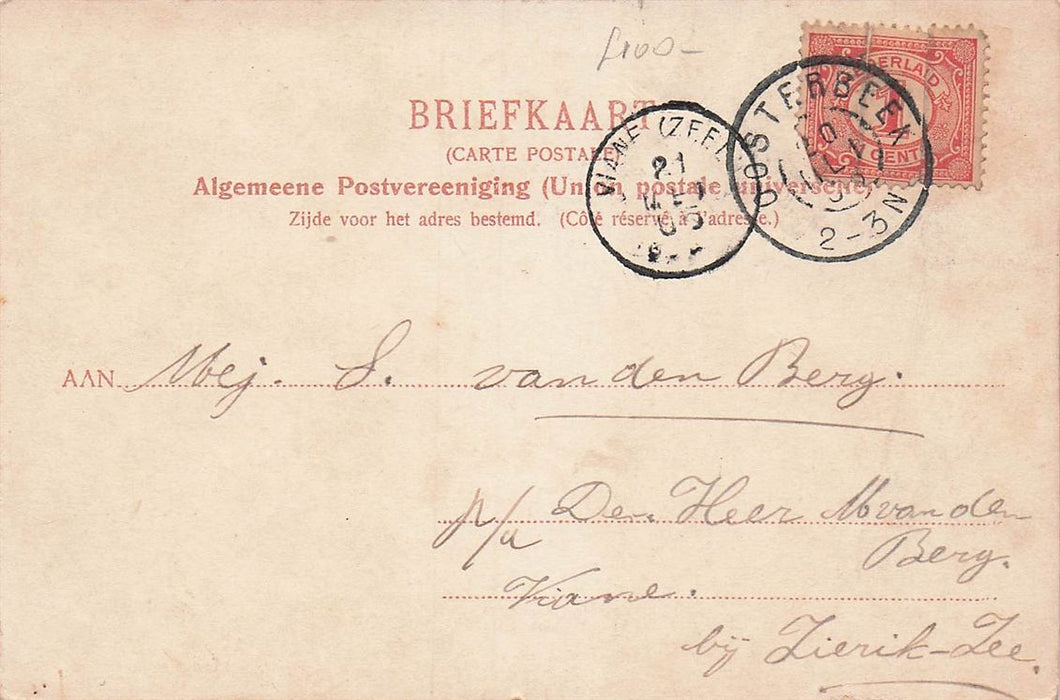 BRIEFKAART
(CARTE POSTALE)
Algemeene Postvereeniging (Union postale universelle)
Zijde voor het adres bestemd. (Côté réservé à l'adresse.)
OOSTERBEEK
20
2-3N
VIANE (ZEEL
21
NEDERLAND
1
CENT
AAN Mej. S. van den Berg.
p/a Den Heer M van den
Berg.
Viane.
bij Zierik-Zee.